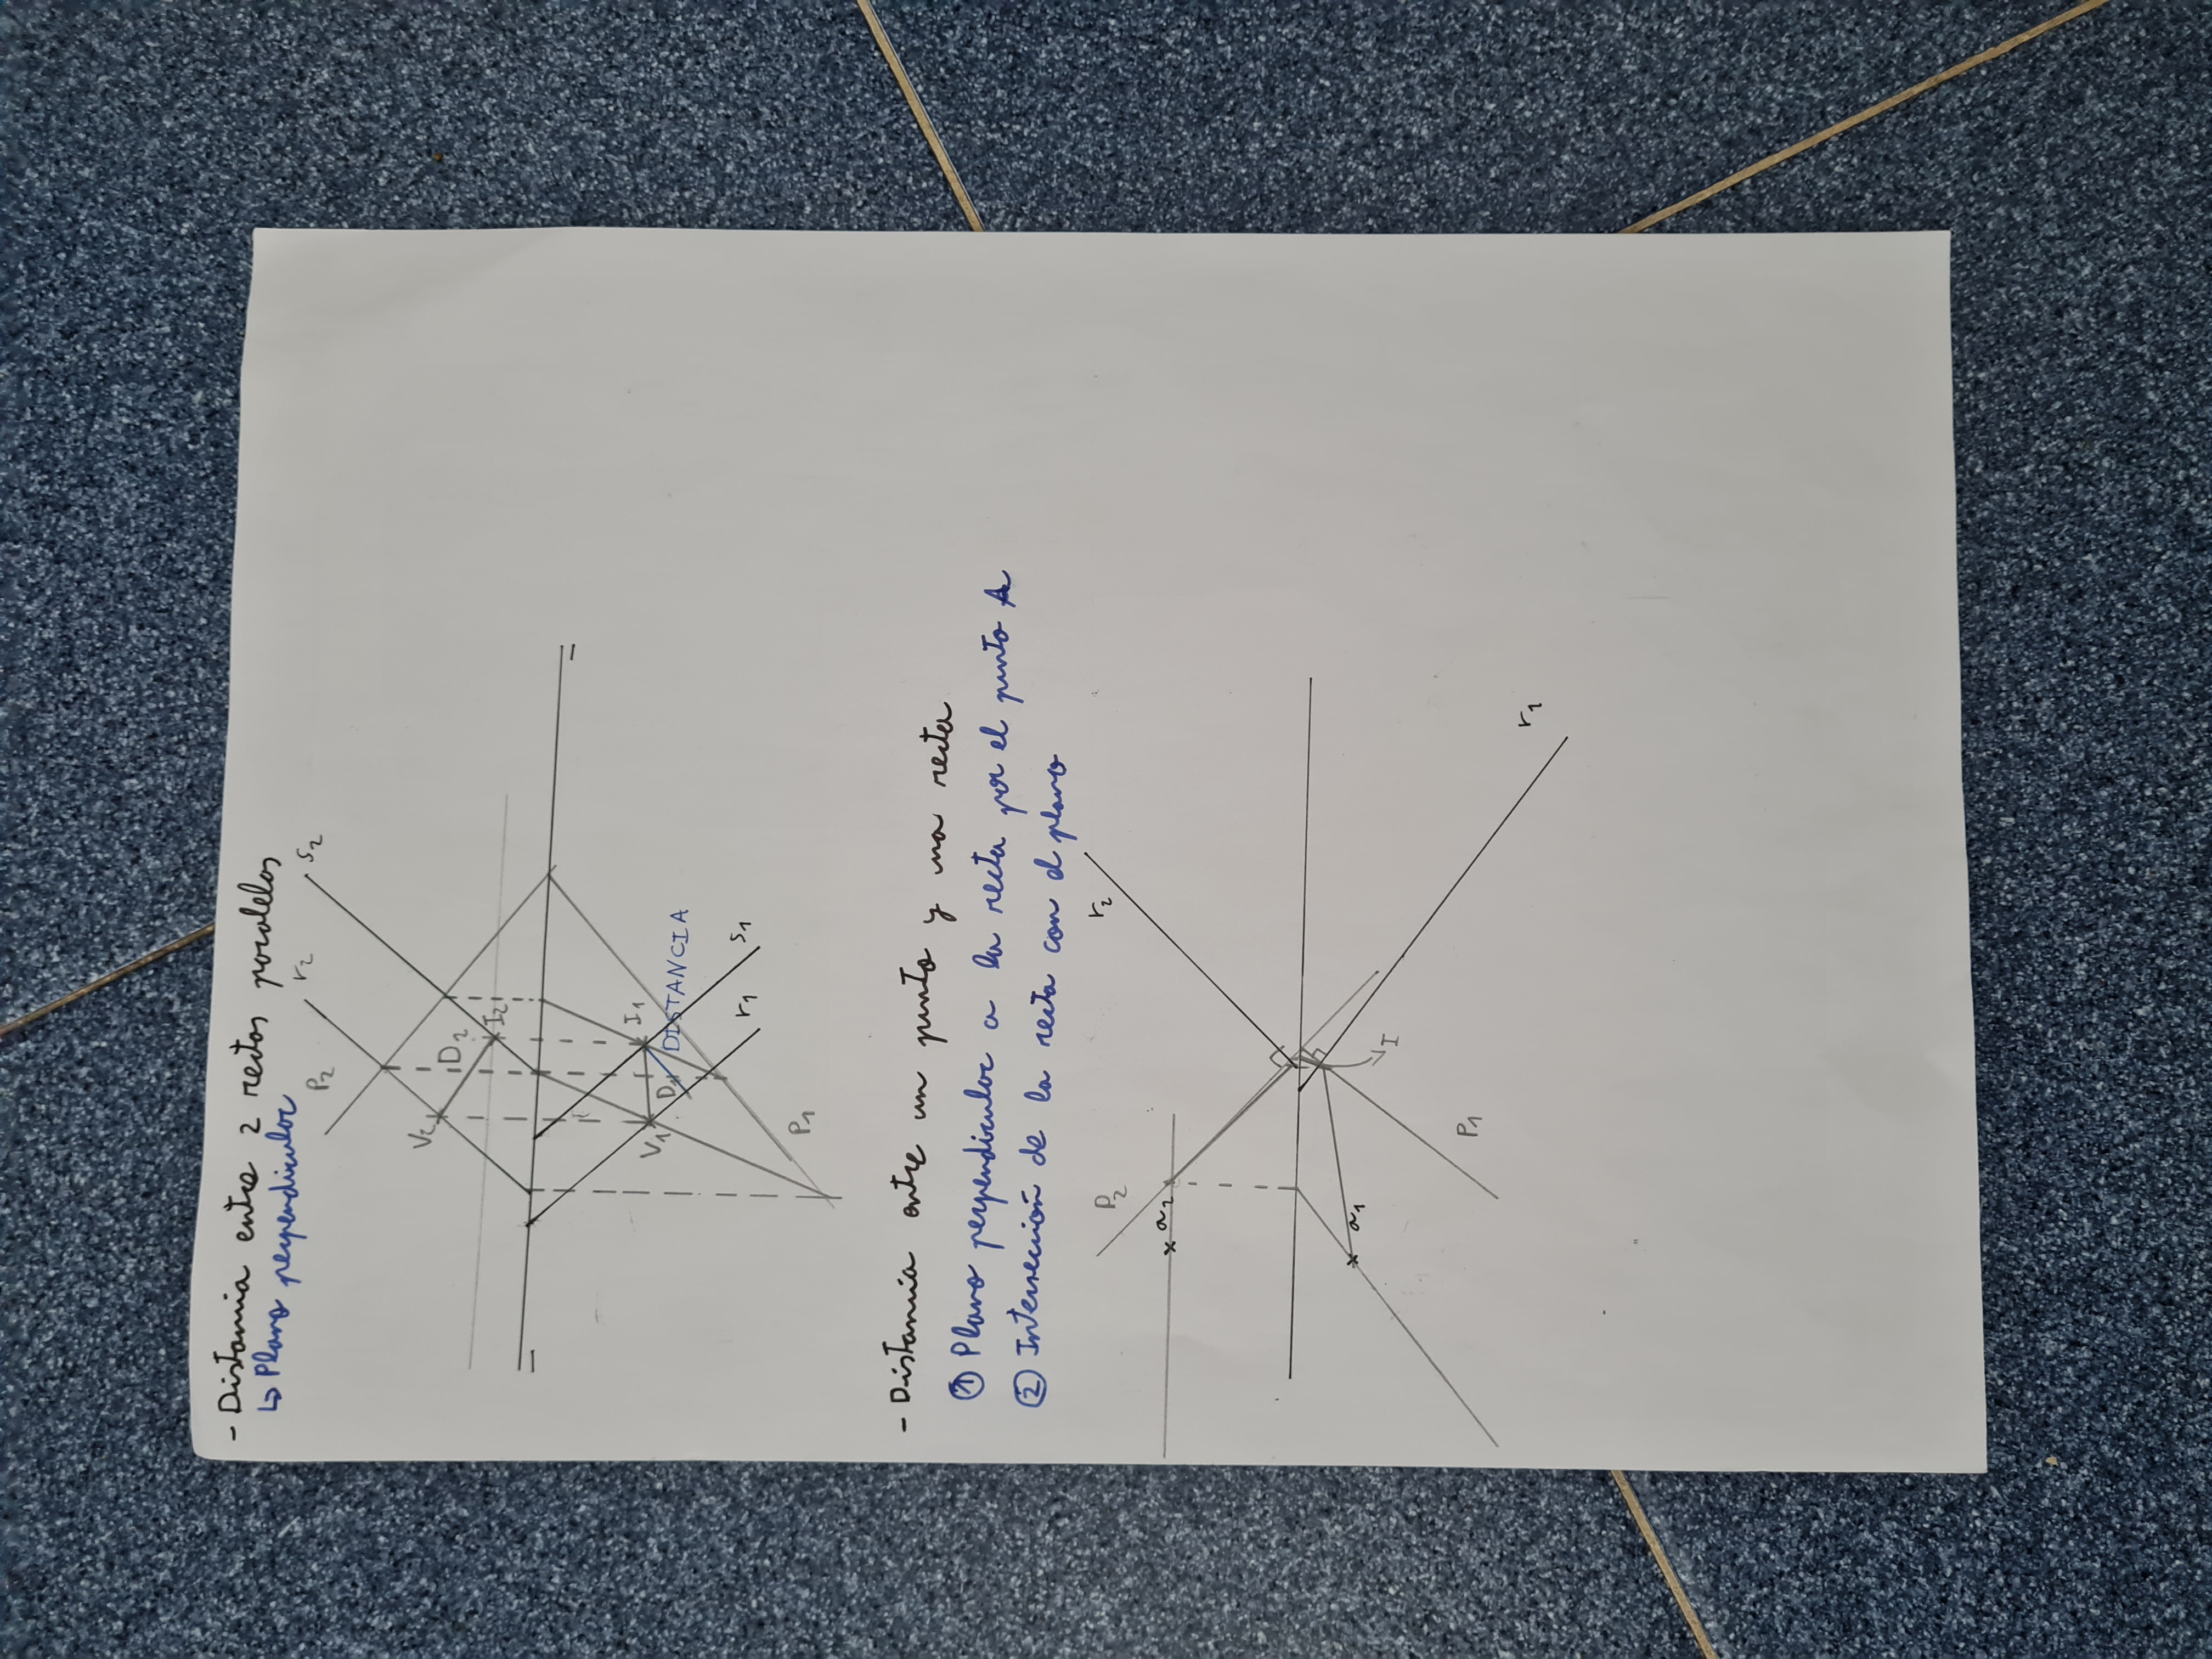 - Distancia entre 2 rectas paralelas
↳ Plano perpendicular
P2 r2 s2
V2 D2
I2
V1 D1 I1
DISTANCIA
r1 s1
P1
- Distancia entre un punto y una recta
① Plano perpendicular a la recta por el punto A
② Intersección de la recta con el plano
P2 r2
a2
a1
I
P1
r1